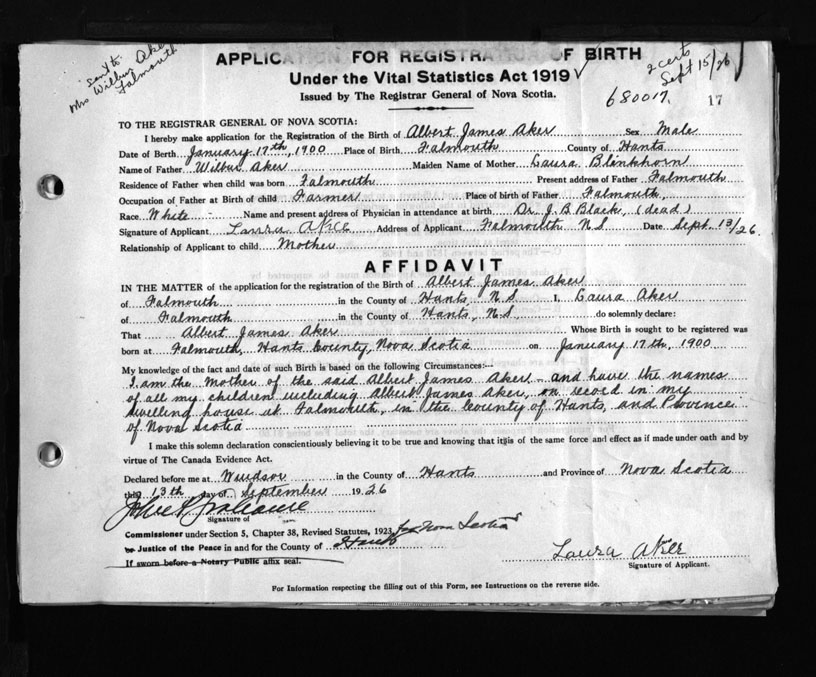 "sent to"
Mrs Wilbur Aker
Falmouth
2 certs
Sept 15/26
680017.
17
APPLICATION FOR REGISTRATION OF BIRTH
Under the Vital Statistics Act 1919 ✓
Issued by The Registrar General of Nova Scotia.
TO THE REGISTRAR GENERAL OF NOVA SCOTIA:
I hereby make application for the Registration of the Birth of Albert James Aker Sex Male
Date of Birth January 17th, 1900 Place of Birth Falmouth County of Hants
Name of Father Wilbur Aker Maiden Name of Mother Laura Blenkhorn
Residence of Father when child was born Falmouth Present address of Father Falmouth
Occupation of Father at Birth of child Farmer Place of birth of Father Falmouth,
Race White Name and present address of Physician in attendance at birth Dr. J. B Black, (dead)
Signature of Applicant Laura Aker Address of Applicant Falmouth N S Date Sept. 13/26.
Relationship of Applicant to child Mother
AFFIDAVIT
IN THE MATTER of the application for the registration of the Birth of Albert James Aker
of Falmouth in the County of Hants N.S I, Laura Aker
of Falmouth in the County of Hants, N.S do solemnly declare:
That Albert James Aker Whose Birth is sought to be registered was
born at Falmouth, Hants County, Nova Scotia on January 17th, 1900
My knowledge of the fact and date of such Birth is based on the following Circumstances:--
I am the Mother of the said Albert James Aker - and have the names
of all my children including Albert James Aker, on record in my
dwelling house at Falmouth, in the County of Hants, and Province
of Nova Scotia
I make this solemn declaration conscientiously believing it to be true and knowing that it is of the same force and effect as if made under oath and by
virtue of The Canada Evidence Act.
Declared before me at Windsor in the County of Hants and Province of Nova Scotia
this 13th day of September 1926
Signature of
Commissioner under Section 5, Chapter 38, Revised Statutes, 1923, for Nova Scotia
or Justice of the Peace in and for the County of Hants
If sworn before a Notary Public affix seal.
Laura Aker
Signature of Applicant.
For Information respecting the filling out of this Form, see Instructions on the reverse side.